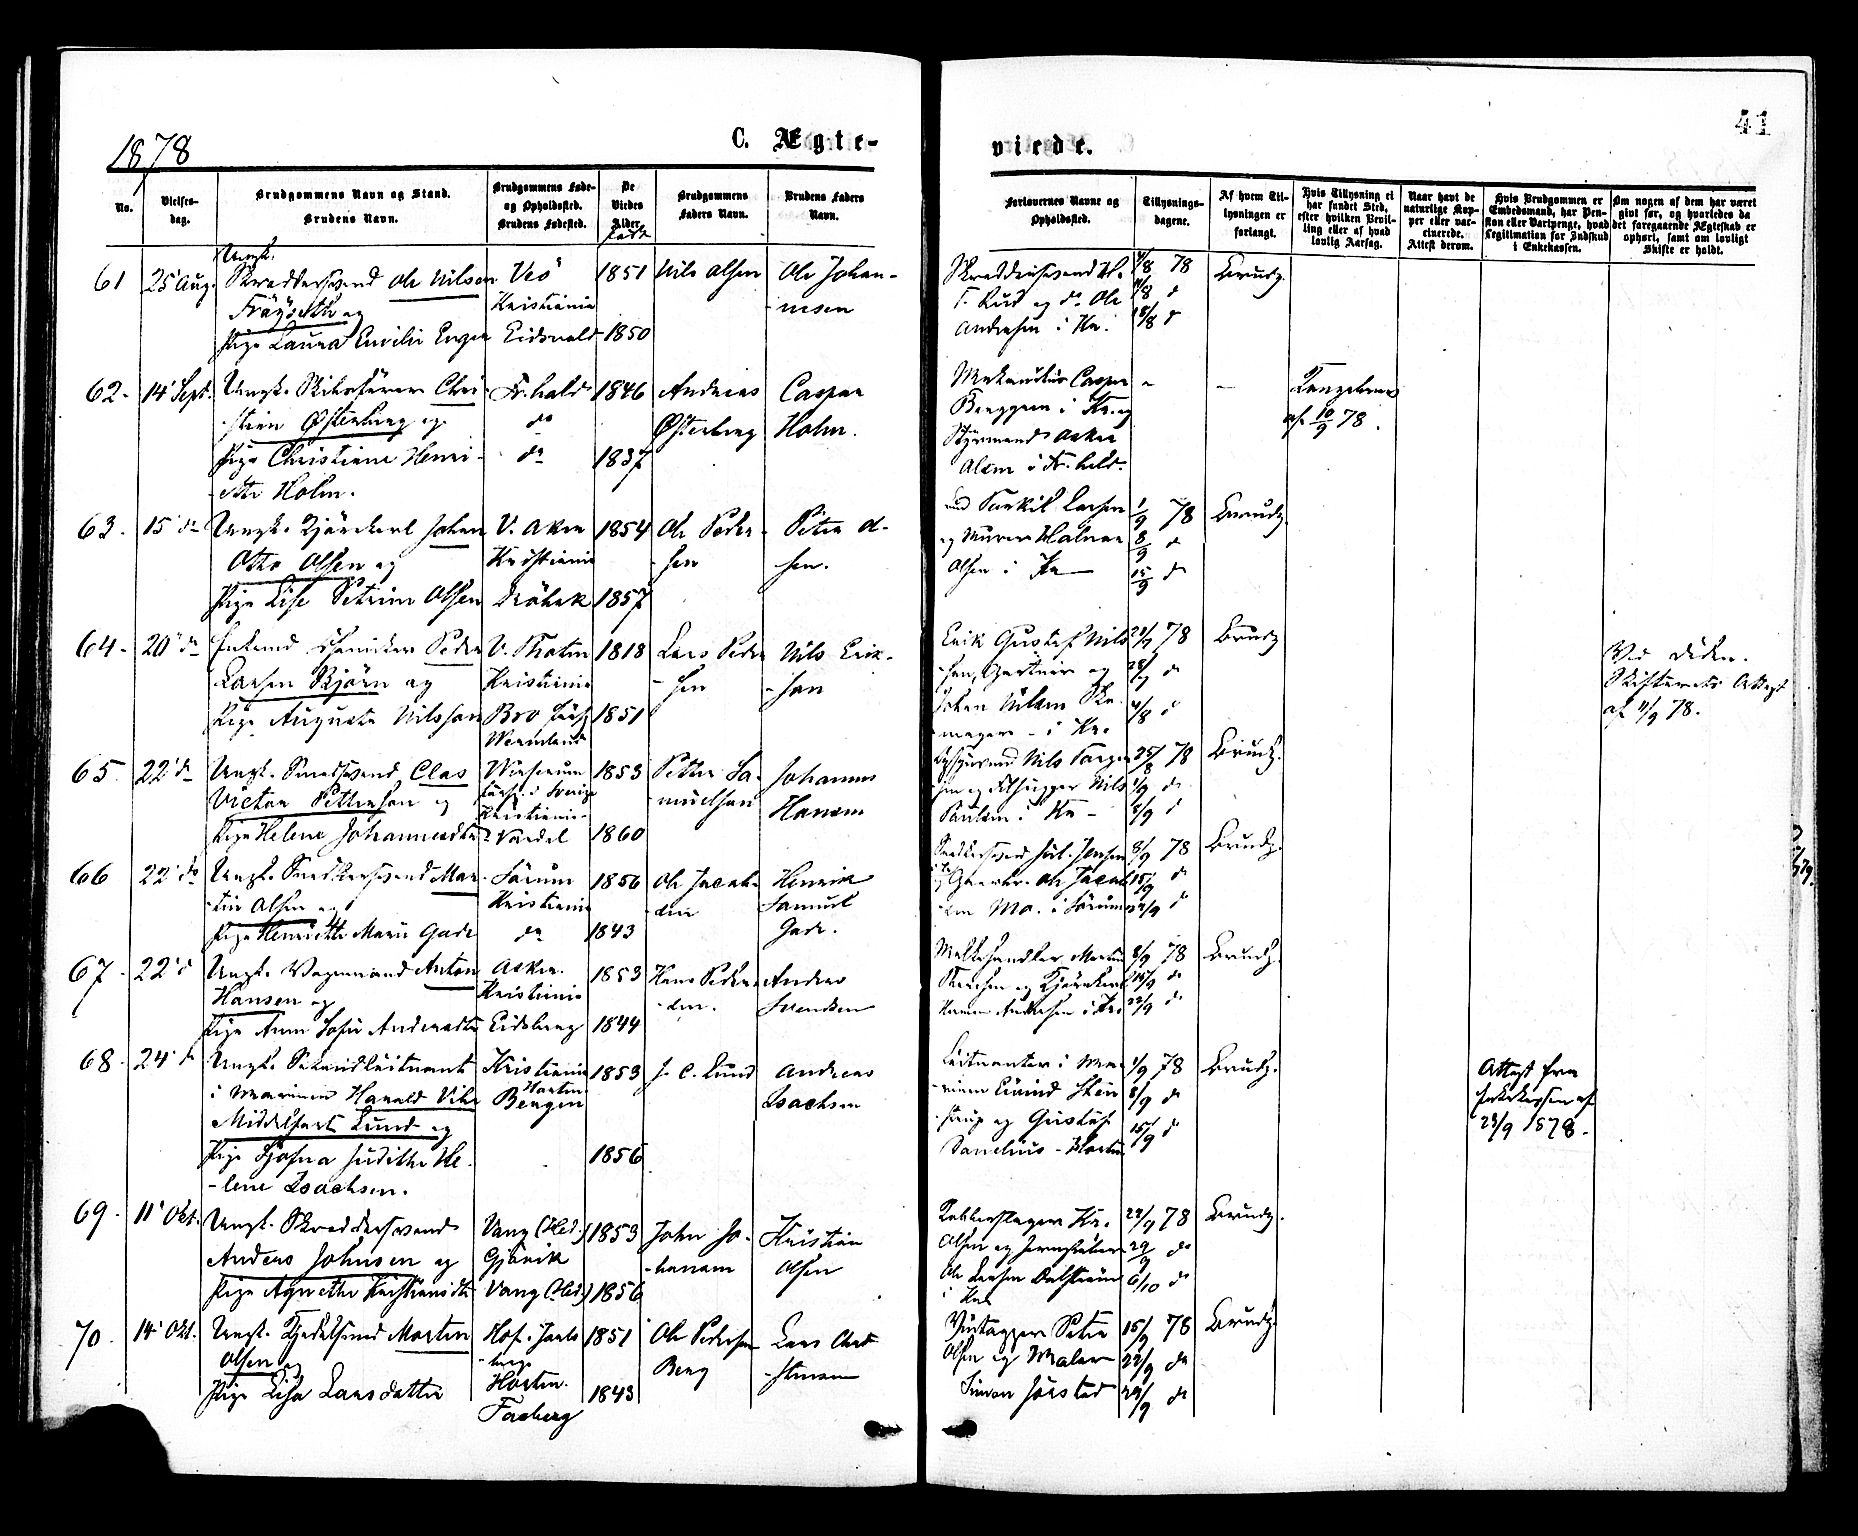 1878
C. Ægte-
viede.
41
No.
Vielses-
dag.
Brudgommens Navn og Stand.
Brudens Navn.
Brudgommens Føde-
og Opholdssted.
Brudens Fødested.
De
Viedes
Alder
født
Brudgommens
Faders Navn.
Brudens Faders
Navn.
Forlovernes Navne og
Opholdssted.
Tillysnings-
dagene.
Af hvem Til-
lysningen er
forlangt.
Hvis Tillysning ei
har fundet Sted,
efter hvilken Bevil-
ling eller af hvad
lovlig Aarsag.
Naar havt de
naturlige Kop-
per eller vac-
cinerede.
Attest derom.
Hvis Brudgommen er
Embedsmand, har Pen-
sion eller Vartpenge, hvad
Legitimation for Indskud
i Enkekassen.
Om nogen af dem har været
gift før, og hvorledes da
det foregaaende Ægteskab er
ophørt, samt om lovligt
Skifte er holdt.
61 25 Aug. Ungk.
Skræddersvend Ole Nilsen
Fröysethr og
Pige Laura Emilie Engen
Kristiania
Eidsvold
1851
1850
Nils Olsen
Ole Johan-
nesen
T. Rud og do Ole
Andresen i Kr.
4/8 78
11/8 d
18/8 d
Brudg.
62. 14 Sept. Ungk. Chri-
stian Østerberg og
Pige Christiane Henri-
ette Holm.
Fr.hald
do
do
1846
1837
Andreas
Østerberg
Caspar
Holm.
Caspar
Berggren i Kr. og
Styrmand
i Fr.hald.
-
-
af 10/9 78.
63. 15 do Ungk. Johan
Otto Olsen og
Pige Lise Petrine Olsen
V. Aker
Kristiania
Dröbak
1854
1857
Ole Peder-
sen
Peter Ol-
sen.
og Murer Halvor
Olsen i Kr
1/9 78
8/9 d
15/9 do
Brudg.
64. 20 do Enkemd Peder
Larsen Björn og
Pige Augusta Nilsson
V. Thoten
Kristiania
Bro
Wermland
1818
1851
Lars Peder
-sen
Nils Erik-
-son
Erik Gustaf Nils
-sen, Gartner og
Johan Nilsen
-mager - i Kr.
21/7 78
28/7 do
4/8 d
Brudg
Skifterets Attest
af 11/9 78.
65. 22 do Ungk. Smedsvend Clas
Victor Petterson og
Pige Helene Johannesdtr
Kristiania
1853
1860
Petter Sa-
muelson
Johannes
Hansen
Nils
Paulsen i Kr -
25/8 78
1/9 do
8/9 d
Brudg.
66 22 do Ungk. Snedkersvend Mar-
tin Olsen og
Pige Henriette Marie Gade
Sörum
Kristiania
do
1856
1843
Ole Jacob-
sen
Henrik
Samuel
Gade.
Ole Jacob
-sen i Sörum
8/9 78
15/9 d
22/9 d
Brudg.
67. 22 d Ungk. Vognmand Anton
Hansen og
Pige Anne Sofie Andersdtr
Asker
Kristiania
Eidsberg
1853
1844
Hans Peder-
-sen.
Anders
Svendsen
Melkehandler Martin
8/9 78
15/9 do
22/9 do
Brudg.
68. 24 d Ungk. Sekondlieutnant
i Marinen Harald Vihe
Middelfart Lund og
Pige Judithe He-
-lene Isachsen.
Kristiania
Horten
Bergen
1853
1856
J. C. Lund
Andreas
Isachsen
Leitnanter i Ma-
-rinen Eivind Sten
-strup og Gustaf
- Horten
1/9 78
8/9 do
15/9 d
Brudg.
Attest fra
Enkekassen af
23/9 1878.
69. 11 Okt. Ungk. Skræddersvend
Anders Johnsen og
Pige Agnethe Kristiansdtr
Vang (Hed.)
Gjövik
Vang (Hed.)
1853
1856
John Jo-
-hansen
Kristian
Olsen
Kr.
Olsen og
Ole Larsen
i Kra
22/9 78
29/9 do
6/10 do
Brudg.
70. 14 Okt. Ungk. Morten
Olsen og
Pige Lisa Larsdatter
Hof. Jarls
-berg
Horten.
Fåberg
1851
1843
Ole Pedersen
Berg
Lars
Peter
Olsen og Maler
Simon Jörstad
15/9 78
22/9 do
29/9 do
Brudg.